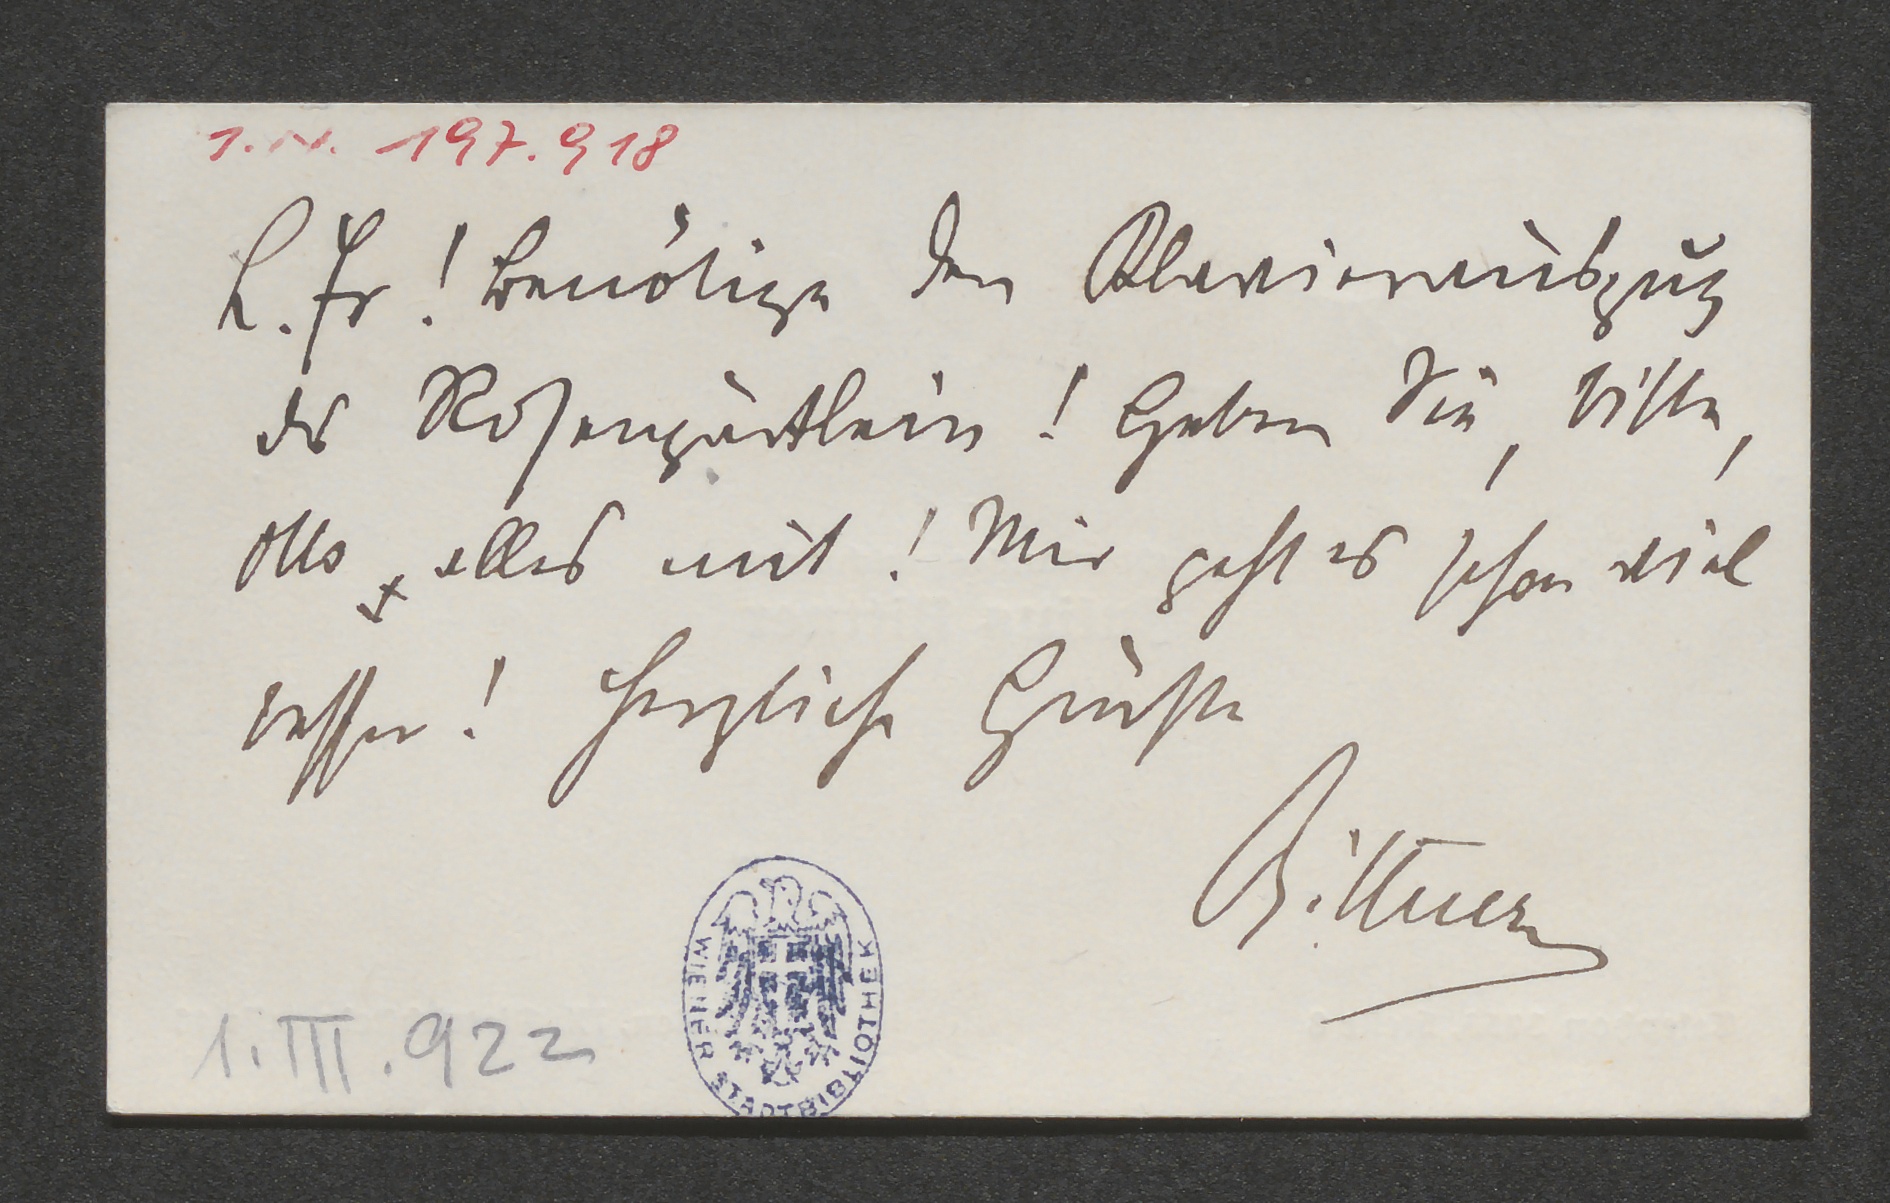 I.N. 197.918
L. Fr! Benötige den Klavierauszug
des Rosengärtlein! Geben Sie, bitte,
Otto alles mit! Mir geht es schon viel
besser! Herzliche Grüße
Bittner
WIENER STADTBIBLIOTHEK
1.III.922